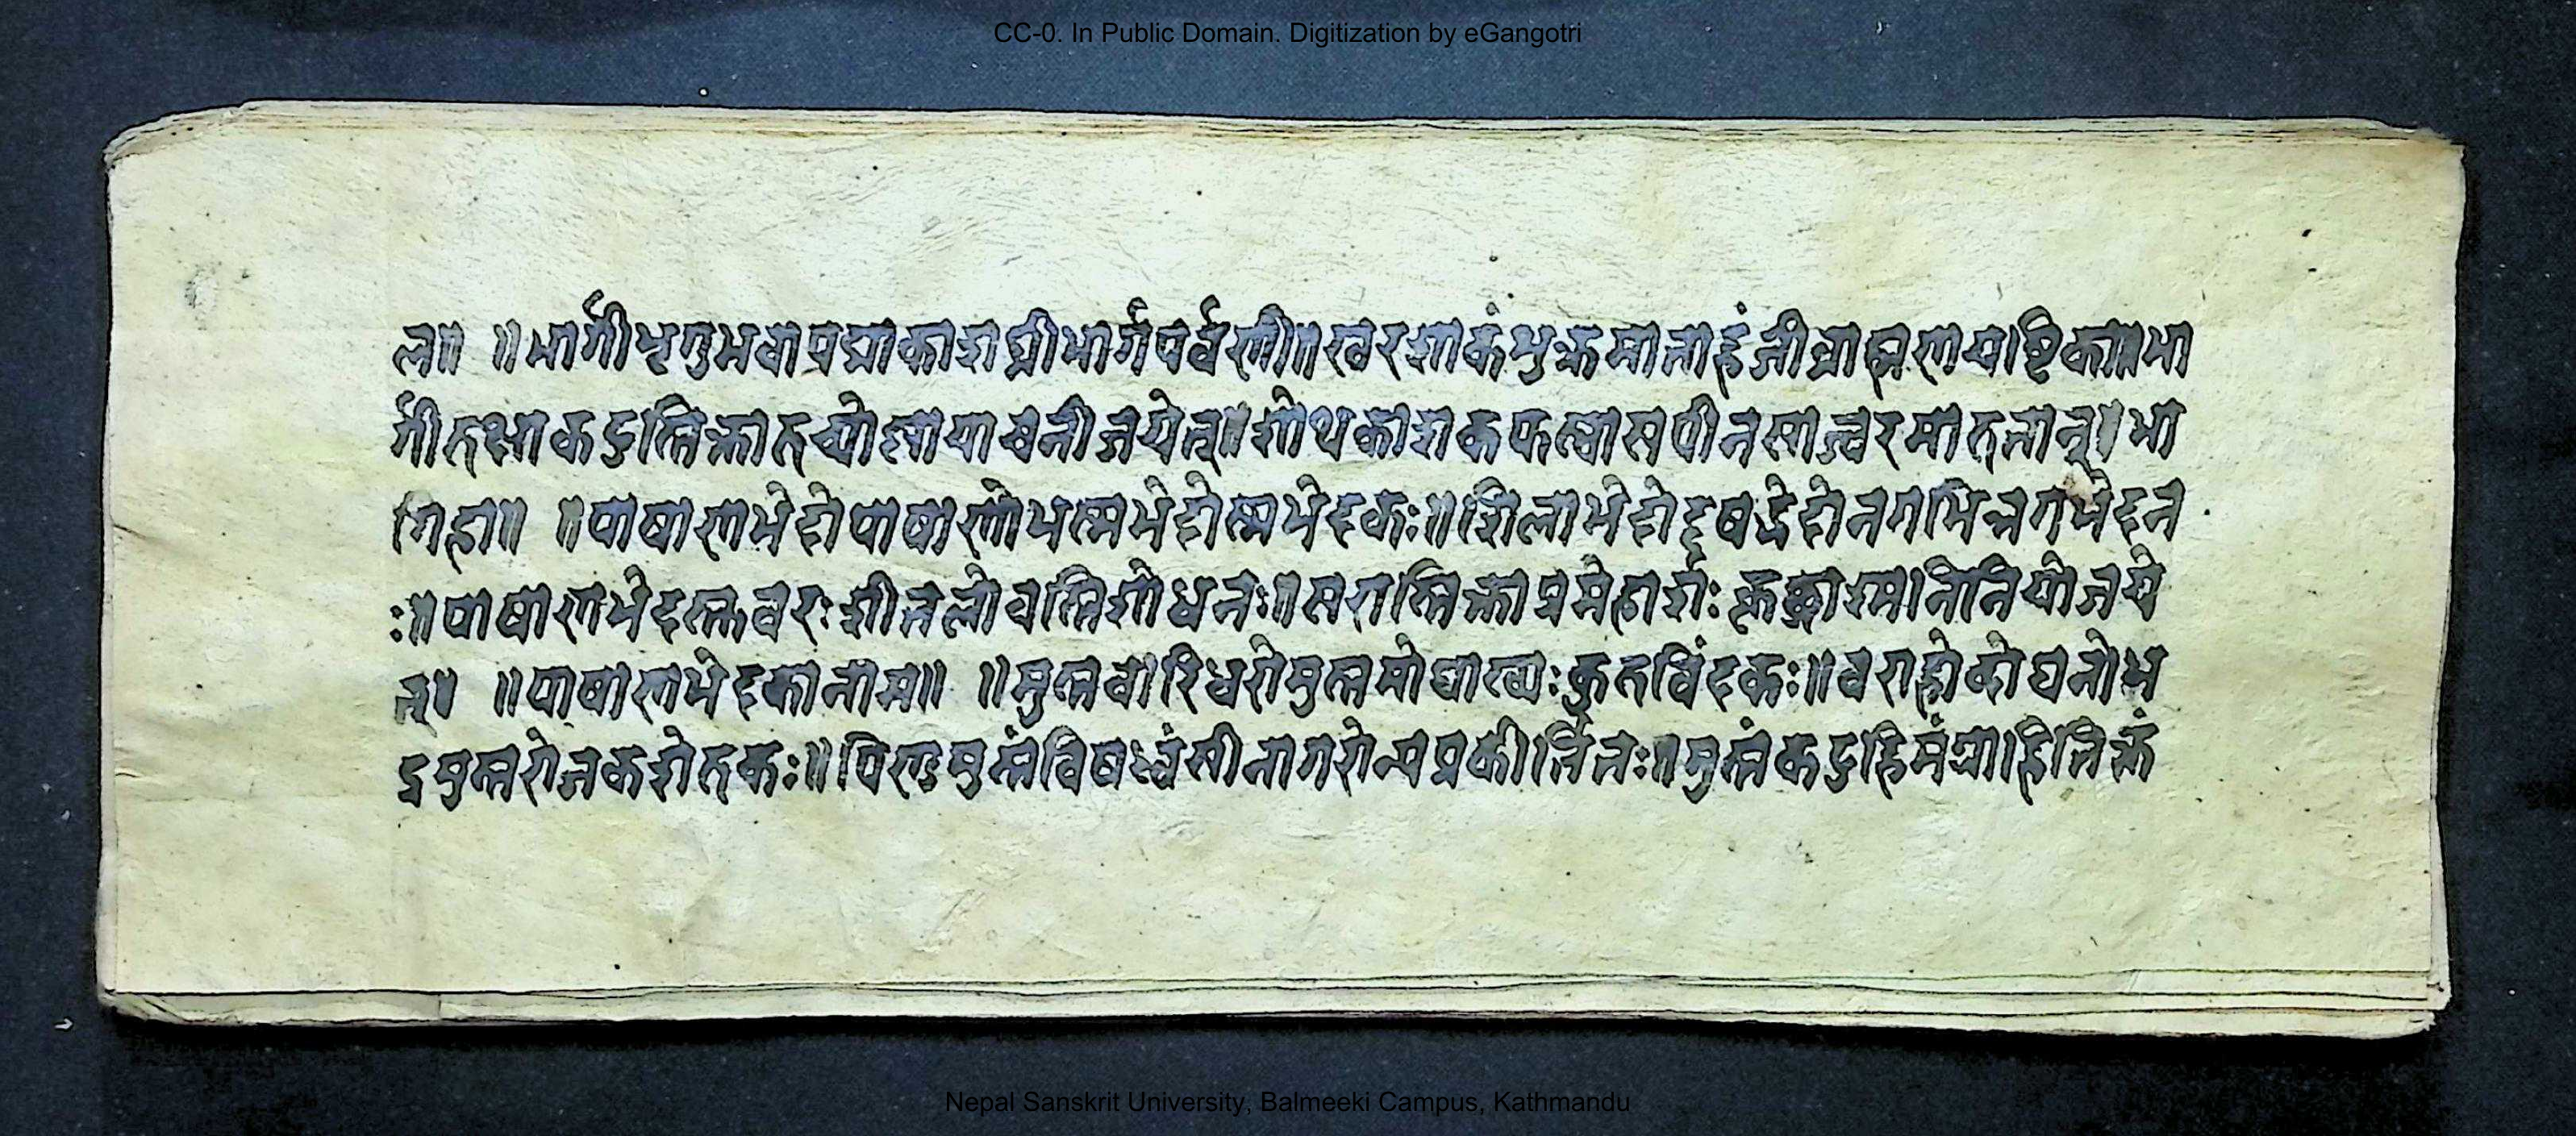 CC-0. In Public Domain. Digitization by eGangotri
ल॥ ॥भार्गीभृगुभवापद्माकाशघ्नीभार्गपर्वणी॥खरशाकं
र्गीरुक्षाकटुस्तिक्तारुच्योष्णापाचनीजयेत्॥शोथकाशकफश्वासपीनसाज्वरमारुतान्॥भा
र्गिहा॥ ॥पाषाणभेदोपाषाणोभस्मभेदोस्मभेदकः॥शिलाभेदोदृषद्भेदोनगभिन्नगभेदन
ः॥पाषाणभेदस्तुवरःशीतलोवस्तिशोधनः॥सरास्तिक्ताप्रमेहार्शःकृच्छ्राश्मानिनियोजये
त्॥ ॥पाषाणभेदकानाम॥ ॥मुस्तवारिधरोमुस्तमोघाख्यःकुरुविंदकः॥वराहोदोघनोभ
द्रमुस्तराजकशेरुकः॥पिण्डमुस्तंविषध्वंसीनागरोन्यप्रकीर्त्तितः॥मुस्तंकटुहिमंग्राहितिक्तं
Nepal Sanskrit University, Balmeeki Campus, Kathmandu